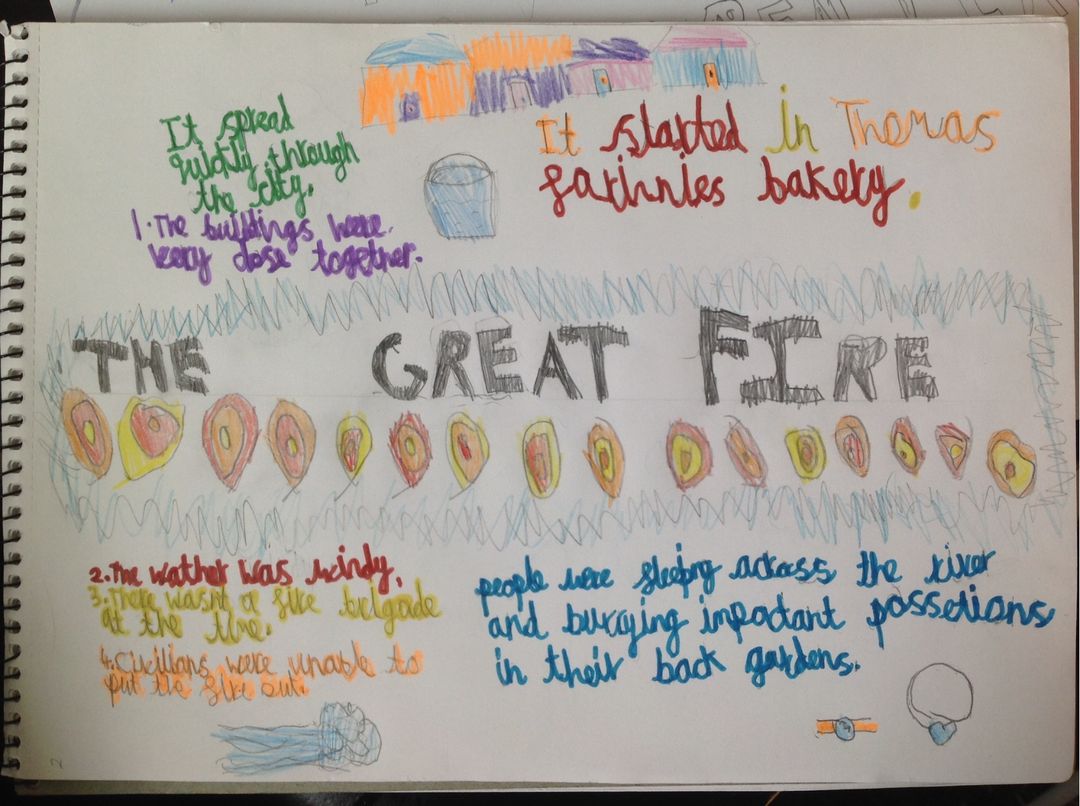 It spread
quickly through
the city.
1. The buildings were
very close together.
It started in Thomas
farinnies bakery.
THE GREAT FIRE
2. The wather was windy.
3. There wasnt a fire belgade
at the time.
4. Civilians were unable to
put the fire out.
people were sleeping across the river
and burying important possetions
in their back gardens.
2